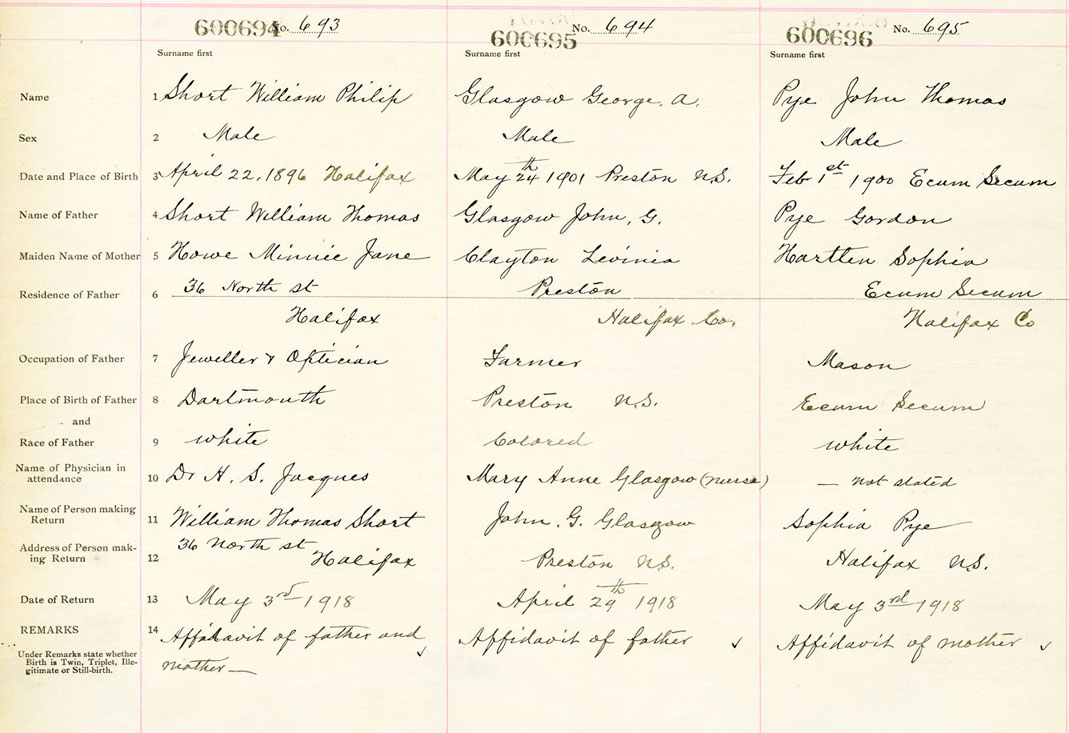 600694 No. 693 600695 No. 694 600696 No. 695
Surname first Surname first Surname first
Name 1 Short William Philip Glasgow George. A. Pye John Thomas
Sex 2 Male Male Male
Date and Place of Birth 3 April 22, 1896 Halifax May 24th 1901 Preston N.S. Feb 1st 1900 Ecum Secum
Name of Father 4 Short William Thomas Glasgow John, G. Pye Gordon
Maiden Name of Mother 5 Howe Minnie Jane Clayton Levinia Hartlen Sophia
Residence of Father 6 36 North st Preston Ecum Secum
Halifax Halifax Co. Halifax Co
Occupation of Father 7 Jeweller & Optician Farmer Mason
Place of Birth of Father 8 Dartmouth Preston N.S. Ecum Secum
and
Race of Father 9 white Colored white
Name of Physician in
attendance 10 Dr H. S. Jacques Mary Anne Glasgow (nurse) — not stated
Name of Person making
Return 11 William Thomas Short John. G. Glasgow Sophia Pye
Address of Person mak-
ing Return 12 36 North st Halifax Preston N.S. Halifax N.S.
Date of Return 13 May 3rd 1918 April 29th 1918 May 3rd 1918
REMARKS 14 Affidavit of father and Affidavit of father Affidavit of mother
Under Remarks state whether
Birth is Twin, Triplet, Ille-
gitimate or Still-birth.
mother —